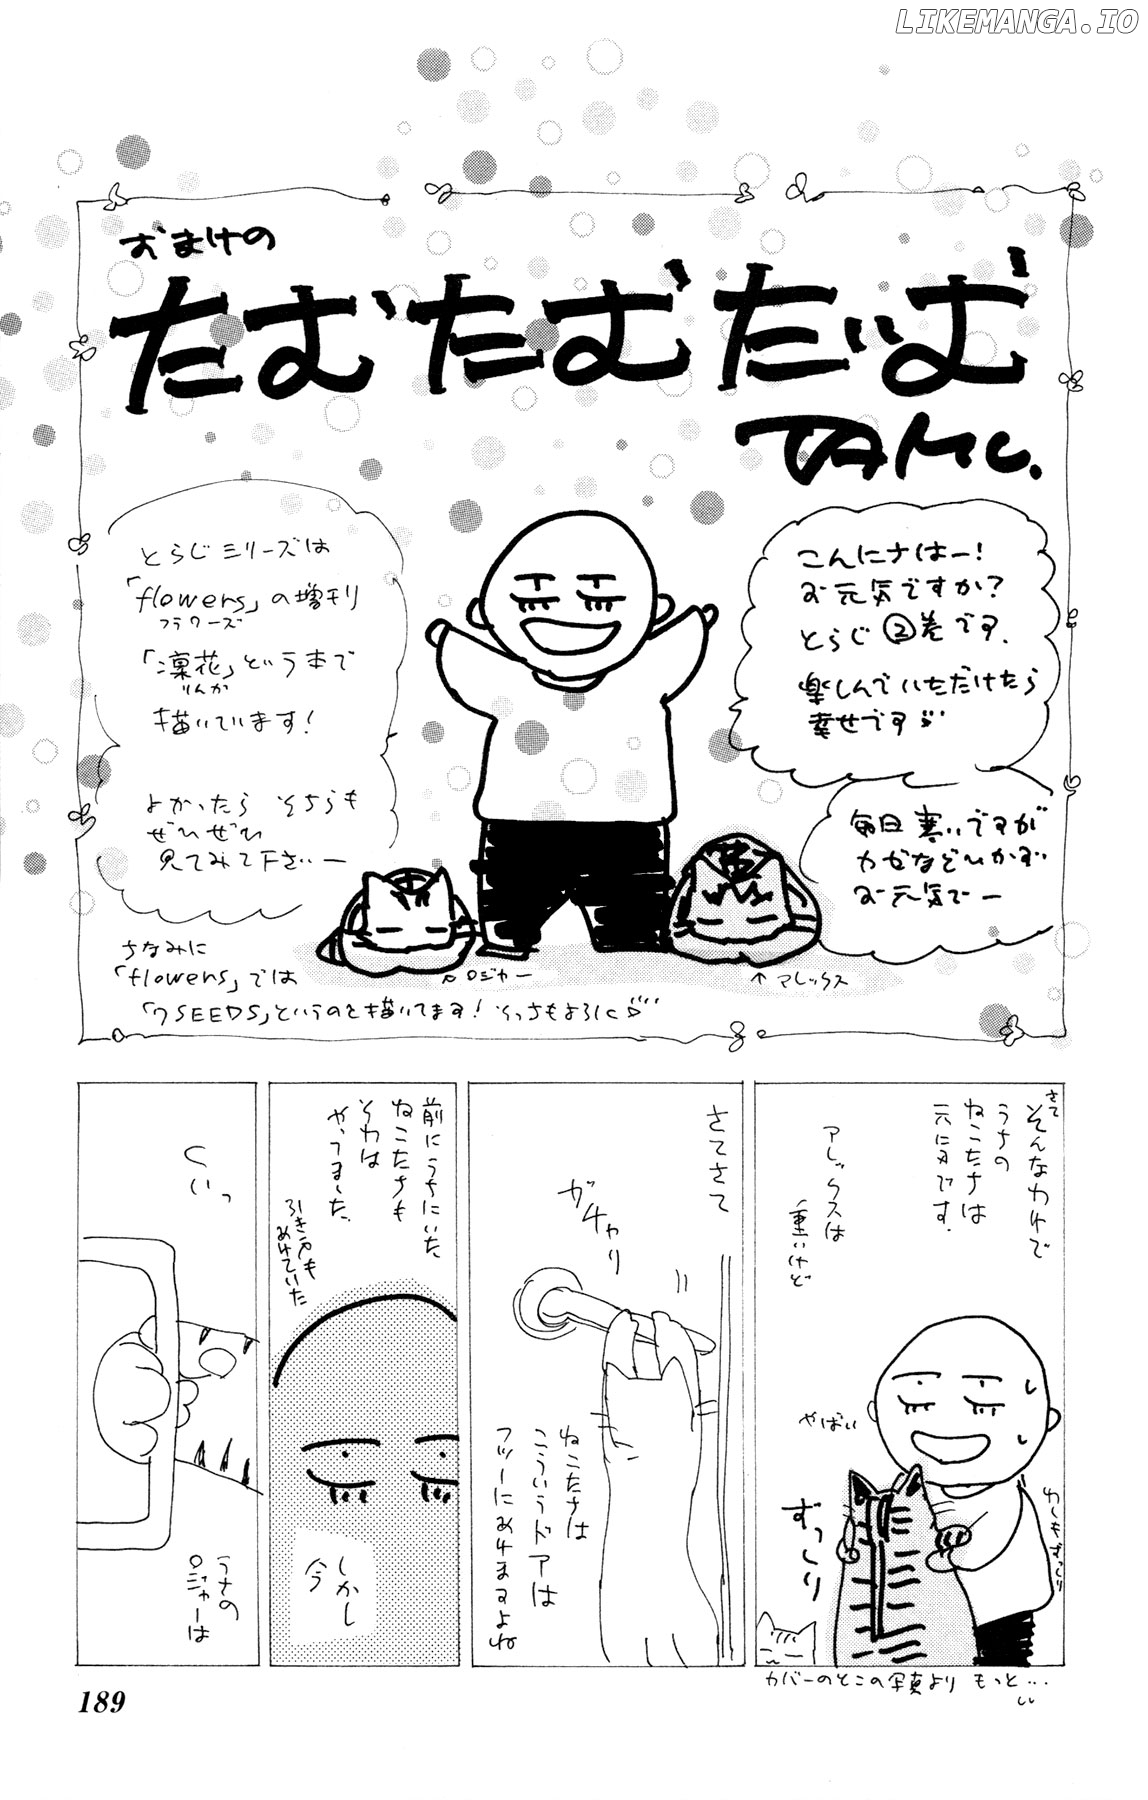 LIKEMANGA.IO
おまけの
たむたむたいむ
TAMU.
こんにちはー!
お元気ですか?
とらじ②巻です。
楽しんでいただけたら
幸せです
毎日寒いですが
カゼなどひかず
お元気でー
とらじシリーズは
「flowers」の増刊
フラワーズ
「凛花」という本で
りんか
描いています!
よかったら そちらも
ぜひぜひ
見てみて下さいー
ちなみに
「flowers」では
「7SEEDS」というのを描いてます! そっちもよろしく
↑ロジャー
↑アレックス
さて
そんなわけで
うちの
ねこたちは
元気です。
アレックスは
重いけど
やばい
ずっしり
カバーのそこの写真より もっと…
さてさて
ガチャリ
ねこたちは
こういうドアは
フツーにあけますよね
前にうちにいた
ねこたちも
それは
やってました。
引き戸も
あけていた
しかし
今
くいっ
うちの
ロジャーは
189